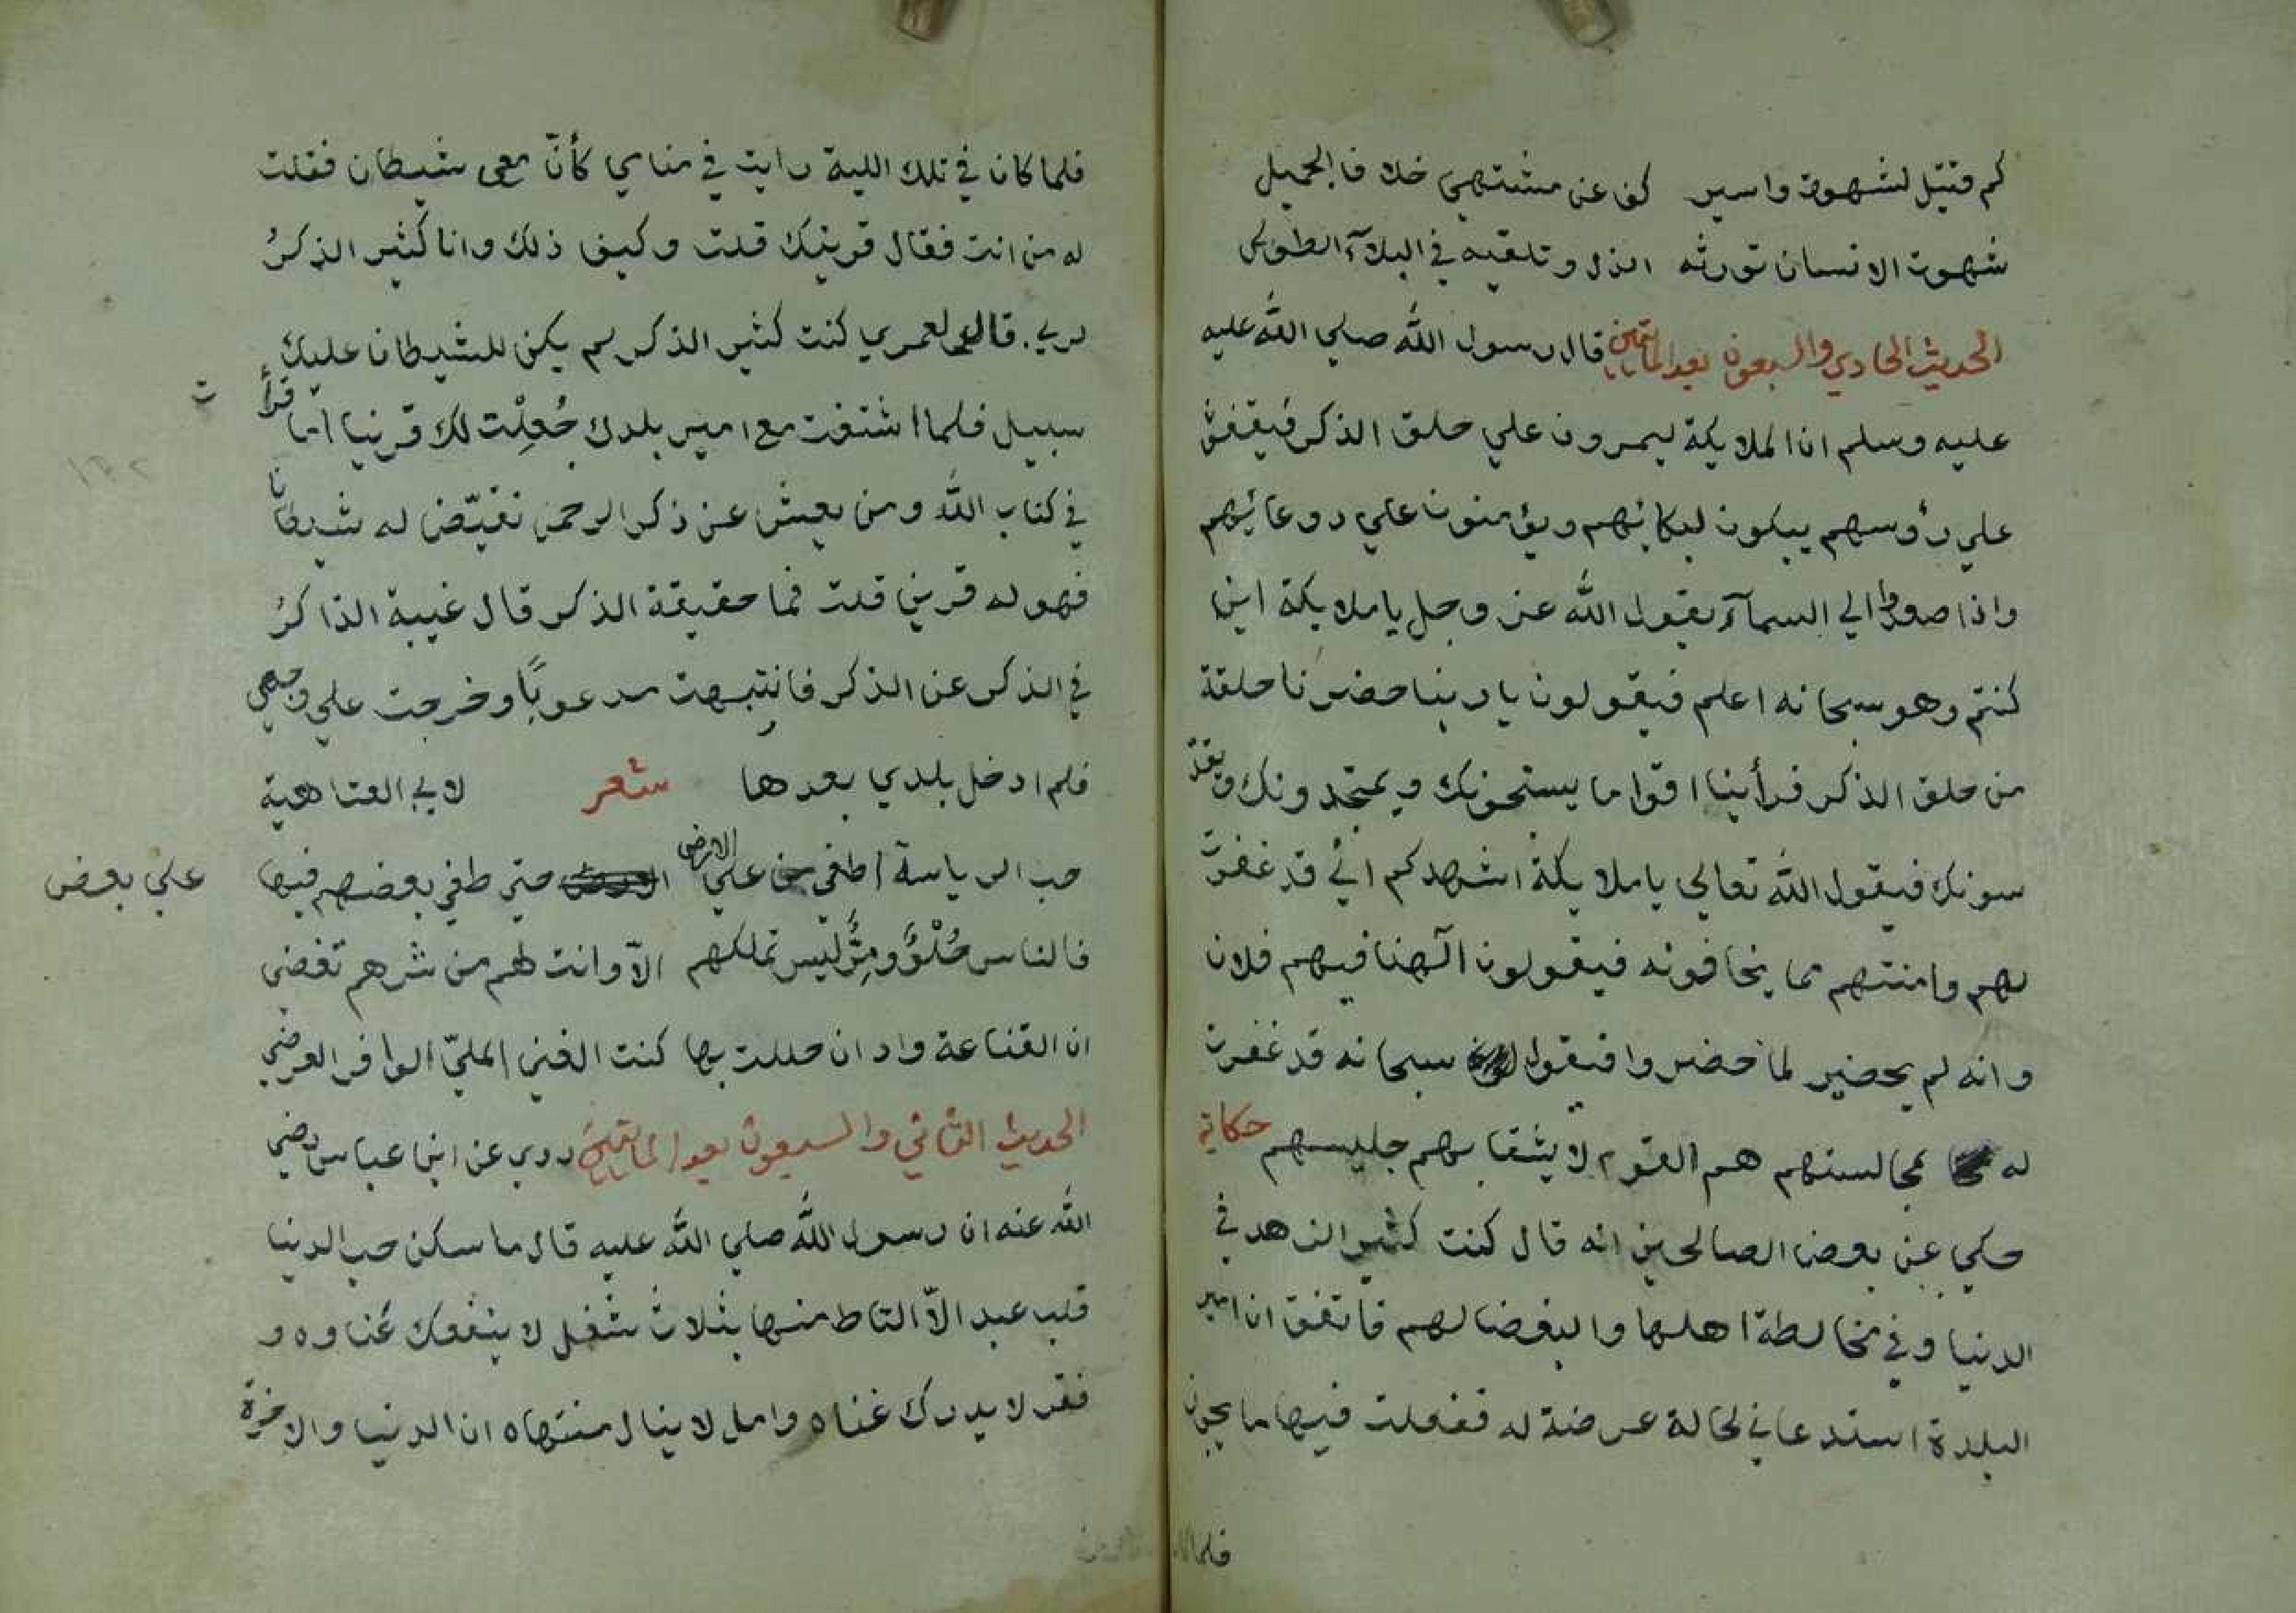 كم قتيل لشهوة واسير كف عن مشتهي خلافا الجميل
شهوت الانسان تورثه الذل وتلقيه في البلآء الطويل
الحديث الحادي والسبعون بعد المايتين قال رسول الله صلي الله عليه
عليه وسلم ان الملايكة ليمرون علي حلق الذكر فيقفون
علي رؤسهم يبكون لبكائهم ويؤمنون علي دوعائهم
واذا صعدوا الي السمآء يقول الله عز وجل يا ملايكة اين
كنتم وهو سبحانه اعلم فيقولون يا ربنا حضرنا حلقة
من حلق الذكر فرأينا اقواما يستحونك ويمتجدونك ويقد
سونك فيقول الله تعالي يا ملايكة اشهدكم اني قد غفرت
لهم وامنتهم مما يخافونه فيقولون آلهنا فيهم فلان
وانه لم يحضير لما حضروا فيقول سبحانه قد غفرت
له بمجالستهم هم القوم لا يشقا بهم جليسهم حكاية
حكي عن بعض الصالحين انه قال كنت كثير الزهد في
الدنيا وفي مخالطة اهلها والبغضا لهم فاتفق ان امير
البلدة استدعاني لحالة عرضة له ففعلت فيها ما يجوز
فلما
فلما كان في تلك اللية رايت في منامي كأنّ معي شيطان فقلت
له من انت فقال قرينك قلت وكيف ذلك وانا كثير الذكر
لربي. قال لعمري كنت كثير الذكر لم يكن للشيطان عليك
سبيل فلما اشتغت مع امير بلدك جُعِلْت لك قرينا اما قرأ ت
في كتاب الله ومن يعيش عن ذكر الرحمن نقيّض له شيطانا
فهو له قرين قلت فما حقيقة الذكر قال غيبة الذاكرُ
في الذكر عن الذكر فانتبهت مرعوبًا وخرجت علي وجهي
فلم ادخل بلدي بعدها شعر لابي العتاهية
حب الرياسة اطغي من علي الارض حتي طغي بعضهم فيها علي بعض
فالناس حُلْوٌ ومِرٌّ ليس تملكهم الآ وانت لهم من شرهم تغضي
ان القناعة واد ان حللت بها كنت الغني المليّ الوافر العرضي
الحديث الثاني والسبعون بعد المايتين روي عن ابن عباس رضي
الله عنه ان رسول الله صلي الله عليه قال ما سكن حب الدنيا
قلب عبد الاّ التاط منها بثلاث شغل لا ينفك عناوه و
فقر لا يدرك غناه وامل لا ينال منتهاه ان الدنيا والاخرة